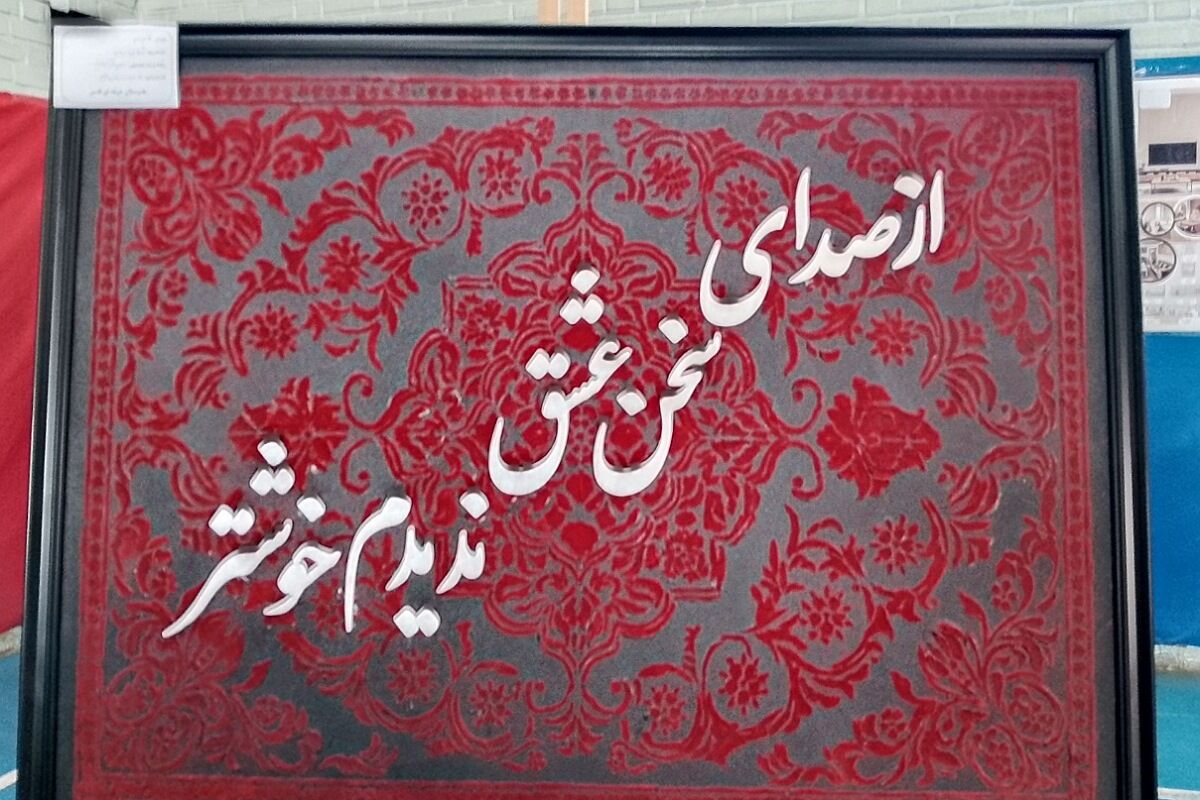 از صدای
سخن عشق
ندیدم خوشتر